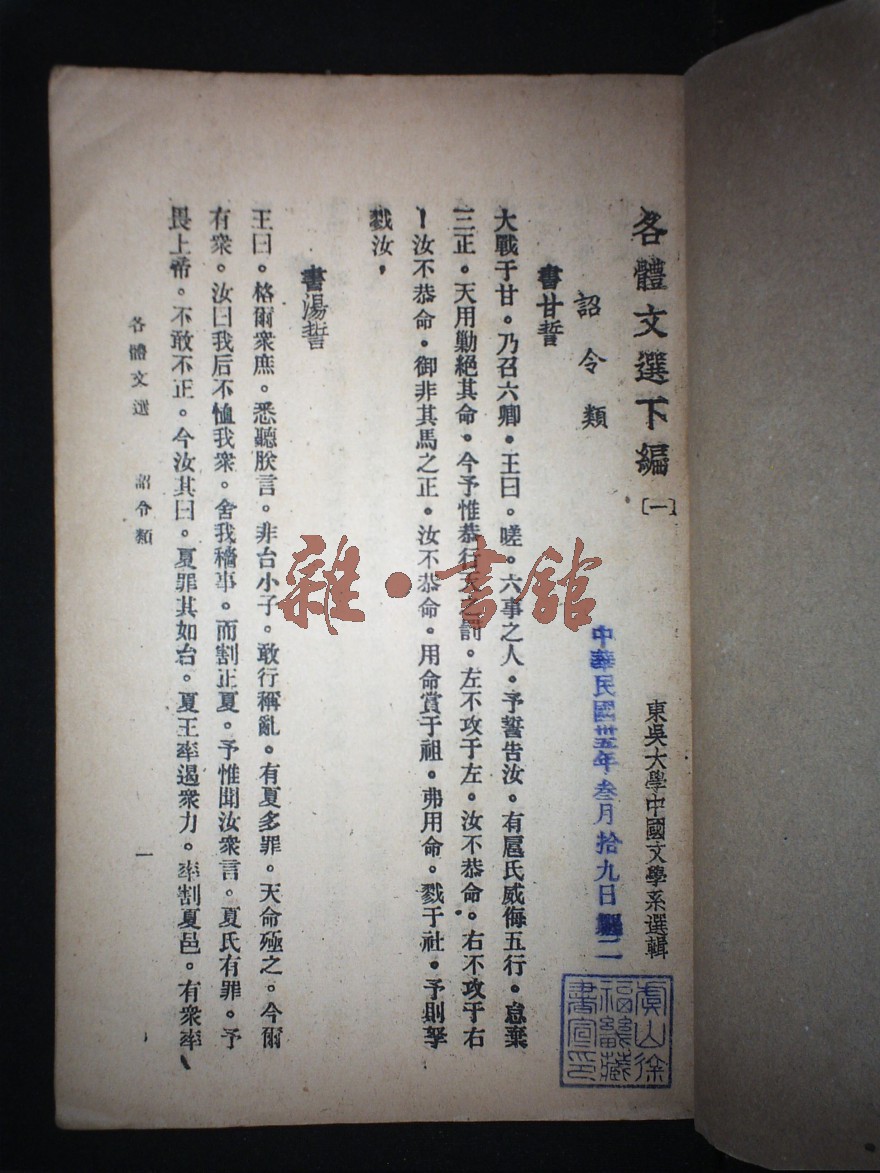 各體文選下編〔一〕
東吳大學中國文學系選輯
詔令類
中華民國卅五年叁月拾九日
書甘誓
大戰于甘。乃召六卿。王曰。嗟。六事之人。予誓告汝。有扈氏威侮五行。怠棄
三正。天用勦絕其命。今予惟恭行天之罰。左不攻于左。汝不恭命。右不攻于右
汝不恭命。御非其馬之正。汝不恭命。用命賞于祖。弗用命。戮于社。予則孥
戮汝，
書湯誓
王曰。格爾衆庶。悉聽朕言。非台小子。敢行稱亂。有夏多罪。天命殛之。今爾
有衆。汝曰我后不恤我衆。舍我穡事。而割正夏。予惟聞汝衆言。夏氏有罪。予
畏上帝。不敢不正。今汝其曰。夏罪其如台。夏王率遏衆力。率割夏邑。有衆率
各體文選 詔令類 一
雜·書館
虞山徐
藏
書印